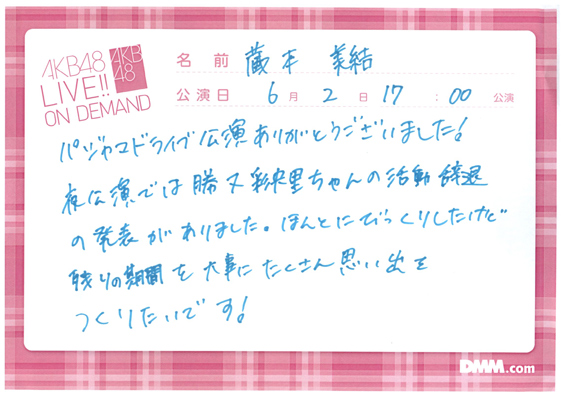 AKB48
LIVE!!
ON DEMAND
AKB
48
名前 蔵本 美結
公演日 6月2日17:00公演
パジャマドライブ公演ありがとうございました!
夜公演では勝又彩央里ちゃんの活動辞退
の発表がありました。ほんとにびっくりしたけど
残りの期間を大事にたくさん思い出を
つくりたいです!
DMM.com